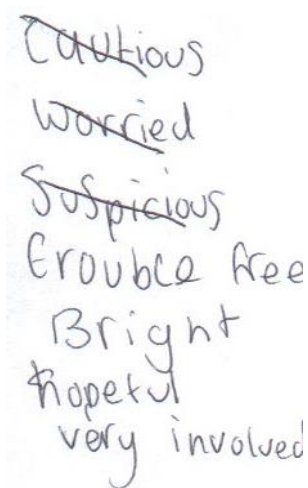 Cautious
Worried
Suspicious
trouble free
Bright
hopeful
very involved